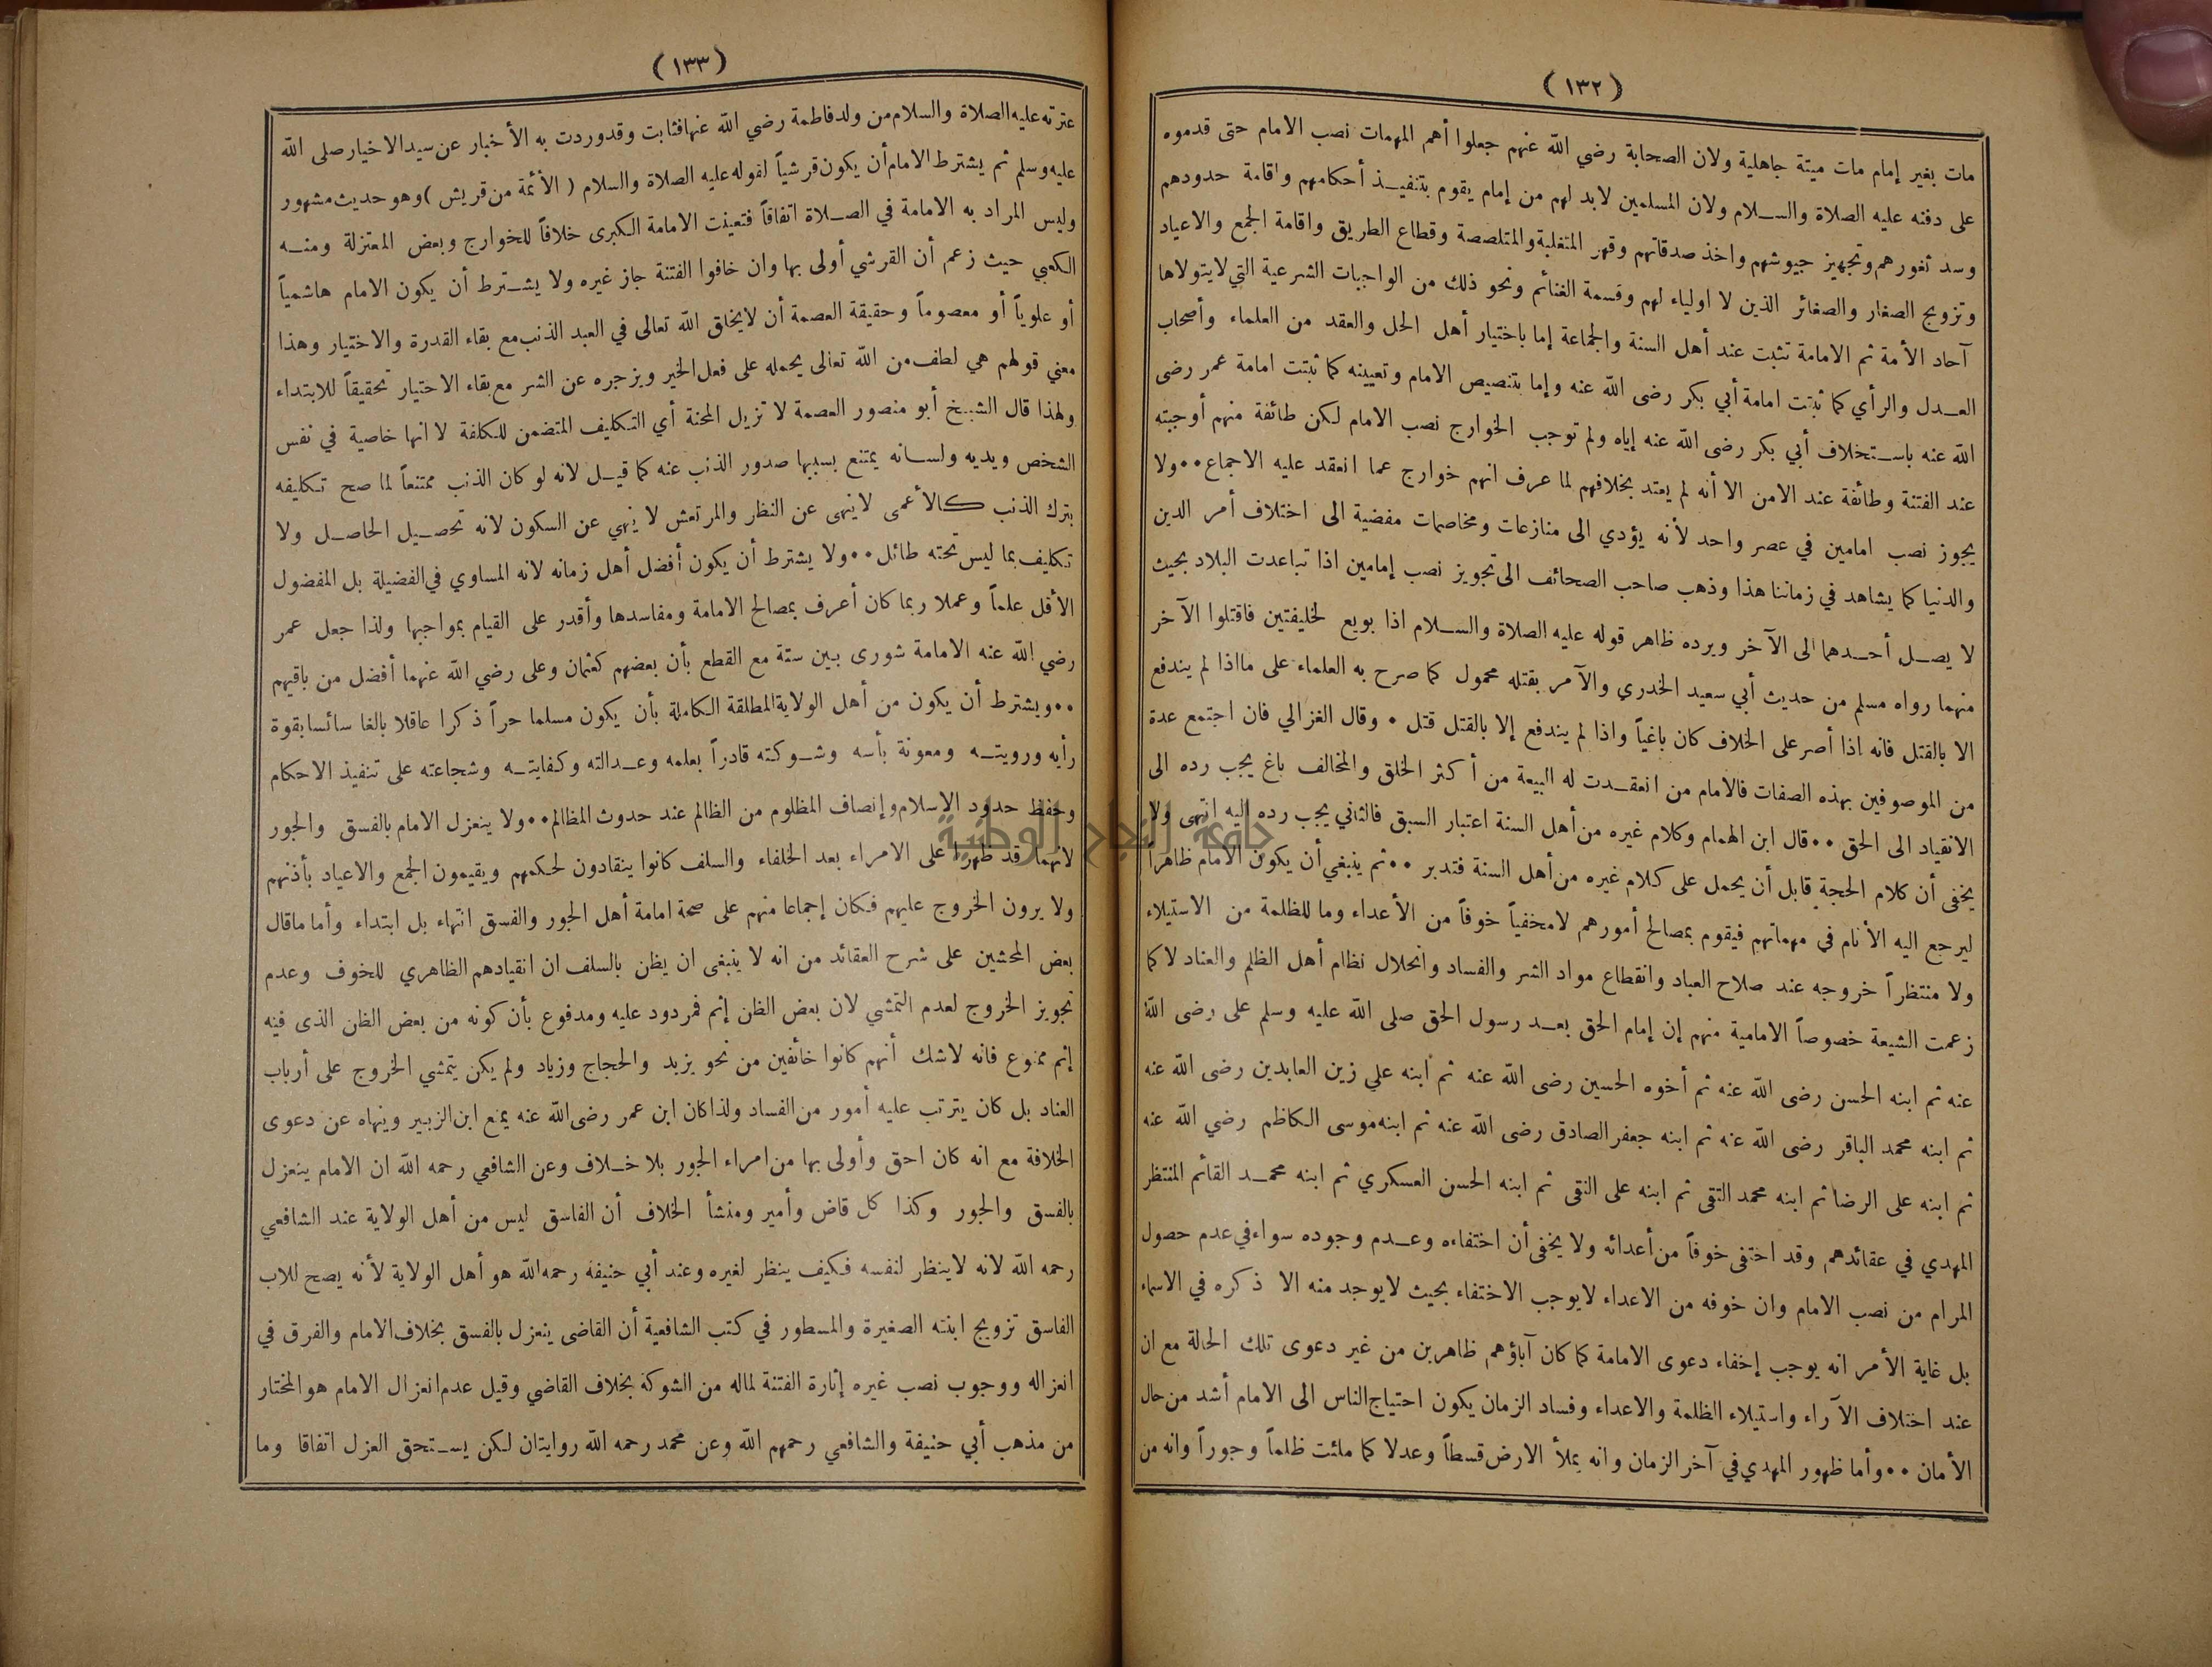 (١٣٢)
مات بغير إمام مات ميتة جاهلية ولان الصحابة رضي الله عنهم جعلوا أهم المهمات نصب الامام حتى قدموه
على دفنه عليه الصلاة والسلام ولان المسلمين لابد لهم من إمام يقوم بتنفيذ أحكامهم واقامة حدودهم
وسد ثغورهم وتجهيز جيوشهم واخذ صدقاتهم وقهر المتغلبة والمتلصصة وقطاع الطريق واقامة الجمع والاعياد
وتزويج الصغار والصغائر الذين لا اولياء لهم وقسمة الغنائم ونحو ذلك من الواجبات الشرعية التي لايتولاها
آحاد الأمة ثم الامامة تثبت عند أهل السنة والجماعة إما باختيار أهل الحل والعقد من العلماء وأصحاب
العدل والرأي كما ثبتت امامة أبي بكر رضى الله عنه وإما بتنصيص الامام وتعيينه كما ثبتت امامة عمر رضى
الله عنه باستخلاف أبي بكر رضى الله عنه إياه ولم توجب الخوارج نصب الامام لكن طائفة منهم أوجبته
عند الفتنة وطائفة عند الامن الا أنه لم يعتد بخلافهم لما عرف انهم خوارج عما انعقد عليه الاجماع ٠٠ ولا
يجوز نصب امامين في عصر واحد لأنه يؤدي الى منازعات ومخاصمات مفضية الى اختلاف أمر الدين
والدنيا كما يشاهد في زماننا هذا وذهب صاحب الصحائف الى تجويز نصب إمامين اذا تباعدت البلاد بحيث
لا يصل أحدهما الى الآخر ويرده ظاهر قوله عليه الصلاة والسلام اذا بويع لخليفتين فاقتلوا الآخر
منهما رواه مسلم من حديث أبي سعيد الخدري والآمر بقتله محمول كما صرح به العلماء على مااذا لم يندفع
الا بالقتل فانه اذا أصر على الخلاف كان باغياً واذا لم يندفع إلا بالقتل قتل ٠ وقال الغزالي فان اجتمع عدة
من الموصوفين بهذه الصفات فالامام من انعقدت له البيعة من أكثر الخلق والمخالف باغ يجب رده الى
الانقياد الى الحق ٠٠ قال ابن الهمام وكلام غيره من أهل السنة اعتبار السبق فالثاني يجب رده إليه انتهى ولا
يخفى أن كلام الحجة قابل أن يحمل على كلام غيره من أهل السنة فتدبر ٠٠ ثم ينبغي أن يكون الامام ظاهرا
ليرجع اليه الأنام في مهماتهم فيقوم بمصالح أمورهم لامخفياً خوفاً من الأعداء وما للظلمة من الاستيلاء
ولا منتظراً خروجه عند صلاح العباد وانقطاع مواد الشر والفساد وانحلال نظام أهل الظلم والعناد لا كما
زعمت الشيعة خصوصاً الامامية منهم إن إمام الحق بعد رسول الحق صلى الله عليه وسلم على رضى الله
عنه ثم ابنه الحسن رضى الله عنه ثم أخوه الحسين رضى الله عنه ثم ابنه علي زين العابدين رضى الله عنه
ثم ابنه محمد الباقر رضى الله عنه ثم ابنه جعفر الصادق رضى الله عنه ثم ابنه موسى الكاظم رضي الله عنه
ثم ابنه على الرضا ثم ابنه محمد التقى ثم ابنه على النقى ثم ابنه الحسن العسكري ثم ابنه محمد القائم المنتظر
المهدي في عقائدهم وقد اختفى خوفاً من أعدائه ولا يخفى أن اختفاءه وعدم وجوده سواء في عدم حصول
المرام من نصب الامام وان خوفه من الاعداء لايوجب الاختفاء بحيث لايوجد منه الا ذكره في الاسماء
بل غاية الأمر انه يوجب إخفاء دعوى الامامة كما كان آباؤهم ظاهرين من غير دعوى تلك الحالة مع ان
عند اختلاف الآراء واستيلاء الظلمة والاعداء وفساد الزمان يكون احتياج الناس الى الامام أشد من حال
الأمان ٠٠ وأما ظهور المهدي في آخر الزمان وانه يملأ الارض قسطاً وعدلا كما ملئت ظلماً وجوراً وانه من
(١٣٣)
عترته عليه الصلاة والسلام من ولد فاطمة رضي الله عنها فثابت وقد وردت به الأخبار عن سيد الاخيار صلى الله
عليه وسلم ثم يشترط الامام أن يكون قرشياً لقوله عليه الصلاة والسلام ( الأئمة من قريش ) وهو حديث مشهور
وليس المراد به الامامة في الصلاة اتفاقاً فتعينت الامامة الكبرى خلافاً للخوارج وبعض المعتزلة ومنه
الكعبي حيث زعم أن القرشي أولى بها وان خافوا الفتنة جاز غيره ولا يشترط أن يكون الامام هاشمياً
أو علوياً أو معصوماً وحقيقة العصمة أن لايخلق الله تعالى في العبد الذنب مع بقاء القدرة والاختيار وهذا
معني قولهم هي لطف من الله تعالى يحمله على فعل الخير ويزجره عن الشر مع بقاء الاختيار تحقيقاً للابتداء
ولهذا قال الشيخ أبو منصور العصمة لا تزيل المحنة أي التكليف المتضمن للكلفة لا انها خاصية في نفس
الشخص ويديه ولسانه يمتنع بسببها صدور الذنب عنه كما قيل لانه لو كان الذنب ممتنعاً لما صح تكليفه
بترك الذنب كالأعمى لاينهى عن النظر والمرتعش لا ينهي عن السكون لانه تحصيل الحاصل ولا
تكليف بما ليس تحته طائل ٠٠ ولا يشترط أن يكون أفضل أهل زمانه لانه المساوي في الفضيلة بل المفضول
الأقل علماً وعملا ربما كان أعرف بمصالح الامامة ومفاسدها وأقدر على القيام بمواجبها ولذا جعل عمر
رضي الله عنه الامامة شورى بين ستة مع القطع بأن بعضهم كعثمان وعلى رضي الله عنهما أفضل من باقيهم
٠٠ ويشترط أن يكون من أهل الولاية المطلقة الكاملة بأن يكون مسلما حراً ذكرا عاقلا بالغا سائسا بقوة
رأيه ورويته ومعونة بأسه وشوكته قادراً بعلمه وعدالته وكفايته وشجاعته على تنفيذ الاحكام
وحفظ حدود الاسلام وإنصاف المظلوم من الظالم عند حدوث المظالم ٠٠ ولا ينعزل الامام بالفسق والجور
لانهما قد ظهرا على الامراء بعد الخلفاء والسلف كانوا ينقادون لحكمهم ويقيمون الجمع والاعياد بأذنهم
ولا يرون الخروج عليهم فكان إجماعا منهم على صحة امامة أهل الجور والفسق انتهاء بل ابتداء وأما ماقال
بعض المحشين على شرح العقائد من انه لا ينبغى ان يظن بالسلف ان انقيادهم الظاهري للخوف وعدم
تجويز الخروج لعدم التمشي لان بعض الظن إثم فمردود عليه ومدفوع بأن كونه من بعض الظن الذى فيه
إثم ممنوع فانه لاشك أنهم كانوا خائفين من نحو يزيد والحجاج وزياد ولم يكن يتمشي الخروج على أرباب
العناد بل كان يترتب عليه أمور من الفساد ولذا كان ابن عمر رضى الله عنه يمنع ابن الزبير وينهاه عن دعوى
الخلافة مع انه كان احق وأولى بها من امراء الجور بلا خلاف وعن الشافعي رحمه الله ان الامام ينعزل
بالفسق والجور وكذا كل قاض وأمير ومنشأ الخلاف أن الفاسق ليس من أهل الولاية عند الشافعي
رحمه الله لانه لاينظر لنفسه فكيف ينظر لغيره وعند أبي حنيفة رحمه الله هو أهل الولاية لأنه يصح للاب
الفاسق تزويج ابنته الصغيرة والمسطور في كتب الشافعية أن القاضى ينعزل بالفسق بخلاف الامام والفرق في
انعزاله ووجوب نصب غيره إثارة الفتنة لماله من الشوكة بخلاف القاضي وقيل عدم انعزال الامام هو المختار
من مذهب أبي حنيفة والشافعي رحمهم الله وعن محمد رحمه الله روايتان لكن يستحق العزل اتفاقا وما
جامعة النجاح الوطنية